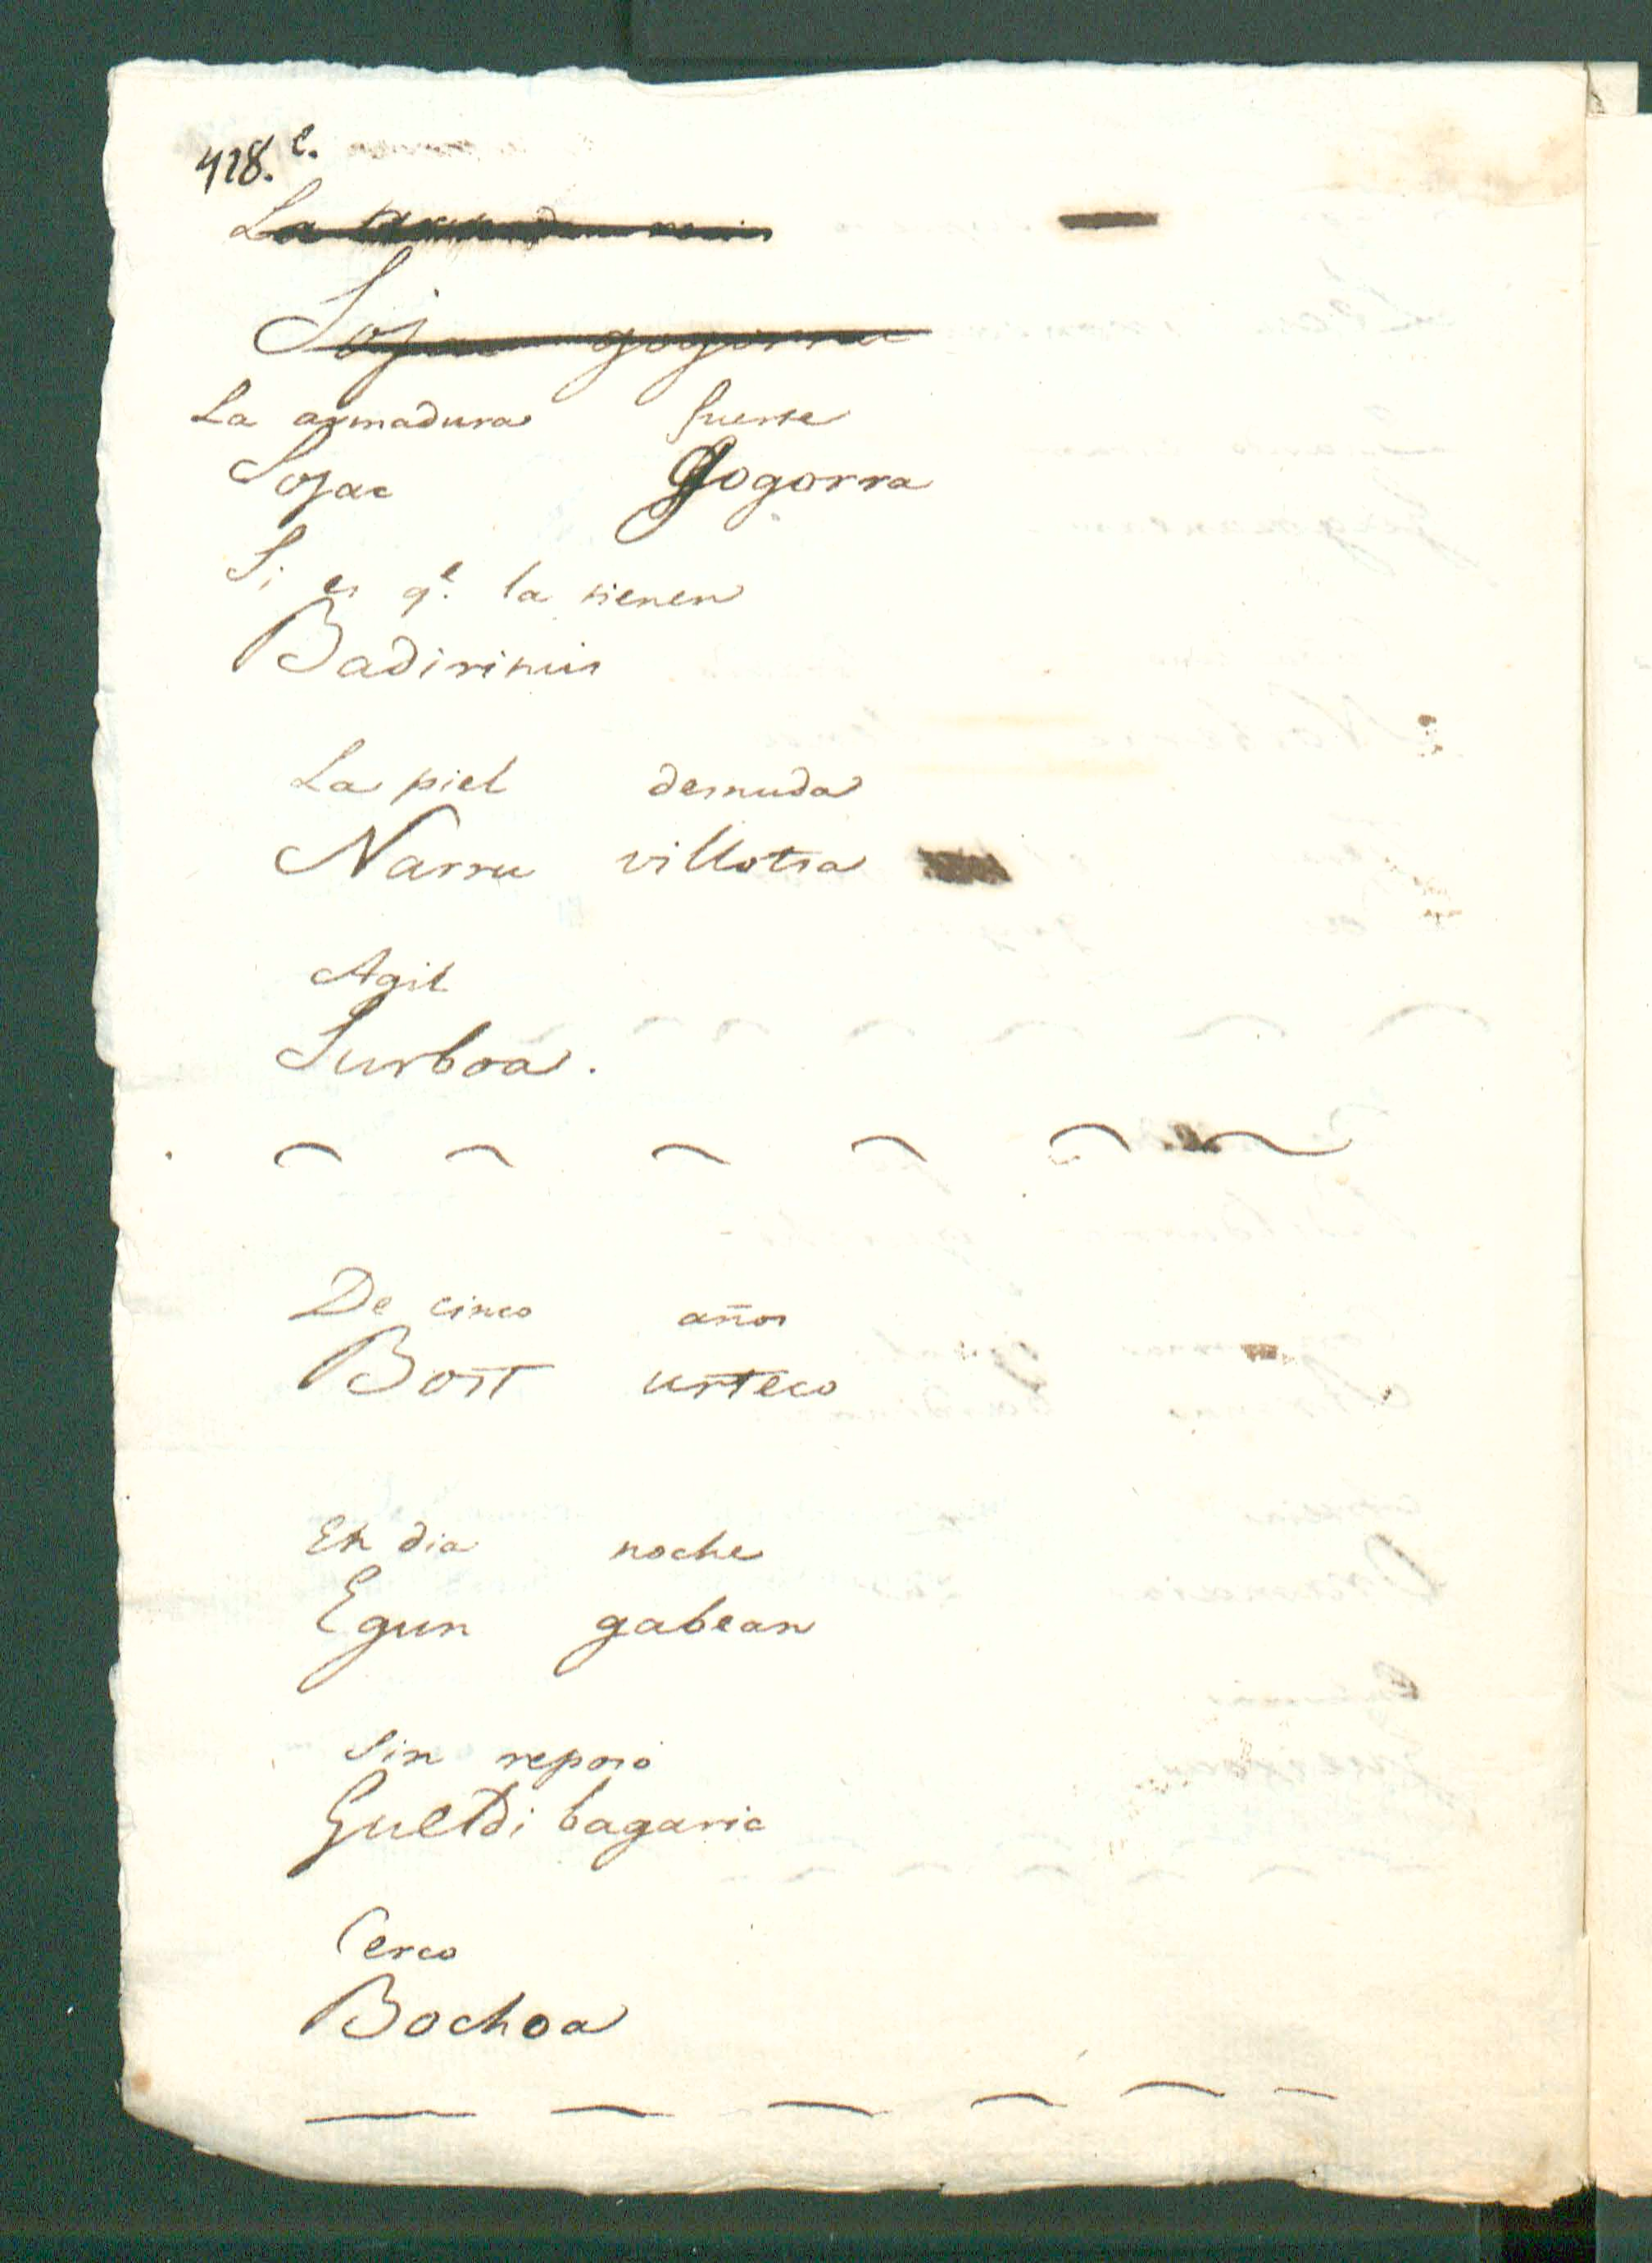 418. e.
La
Sojac gogorra
La armadura fuerte
Sojac Gogorra
Si es qe. la tienen
Badirituis
La piel desnuda
Narru villotsa
Agil
Surboa.
De cinco años
Bost urteco
En dia noche
Egun gabean
Sin reposo
Gueldi bagaric
Cerco
Bochoa